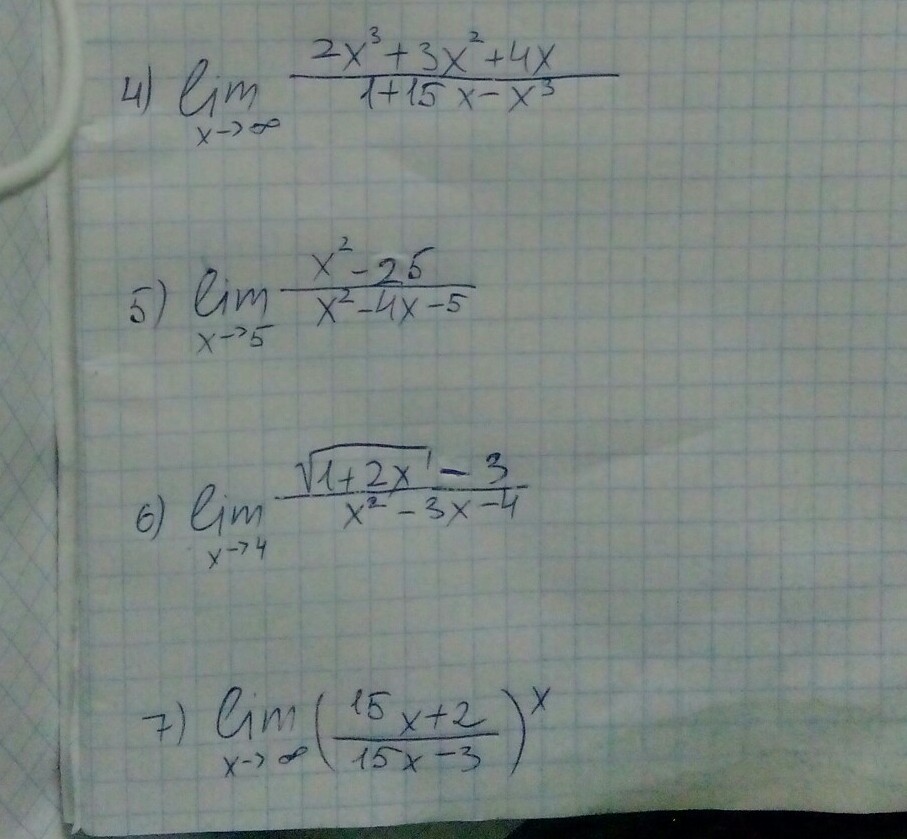 4) lim x→∞ (2x³+3x²+4x)/(1+15x-x³)
5) lim x→5 (x²-25)/(x²-4x-5)
6) lim x→4 (√(1+2x) - 3)/(x²-3x-4)
7) lim x→∞ ((15x+2)/(15x-3))ˣ